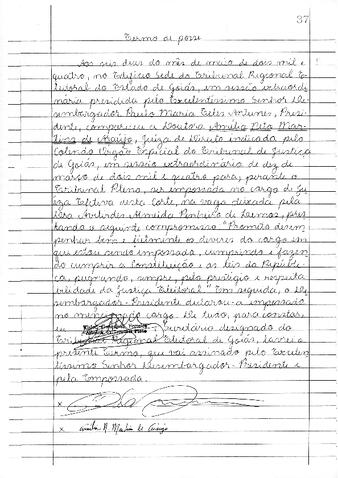 37
Termo de posse
Aos seis dias do mês de maio de dois mil e
quatro, no Edifício Sede do Tribunal Regional E-
leitoral do Estado de Goiás, em sessão extraordi-
nária presidida pelo Excelentíssimo Senhor De-
sembargador Paulo Maria Teles Antunes, Presi-
dente, compareceu a Doutora Amélia Netto Mar-
tins de Araújo, Juíza de Direito indicada pelo
Colendo Órgão Especial do Tribunal de Justiça
de Goiás, em sessão extraordinária de dez de
março de dois mil e quatro para, perante o
Tribunal Pleno, ser empossada no cargo de Ju-
íza Efetiva desta Corte, na vaga deixada pela
Dra Avelirdes Almeida Pinheiro de Lemos, pres-
tando o seguinte compromisso "Prometo desem-
penhar bem e fielmente os deveres do cargo em
que estou sendo empossada, cumprindo e fazen-
do cumprir a Constituição e as leis da Repúbli-
ca, pugnando, sempre, pelo prestígio e respeita-
bilidade da Justiça Eleitoral." Em seguida, o De-
sembargador-Presidente declarou-a empossada
no mencionado cargo. De tudo, para constar,
eu Secretário designado do
Tribunal Regional Eleitoral de Goiás, lavrei o
presente Termo, que vai assinado pelo Excelen-
tíssimo Senhor Desembargador-Presidente e
pela Empossada.
x
x Amélia N. Martins de Araújo